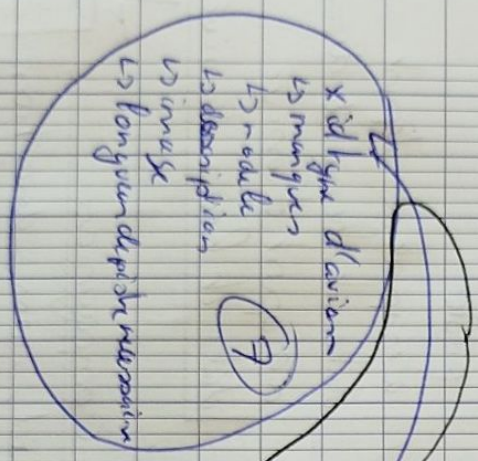 x id type d'avion
↳ marques
↳ modele
↳ description
↳ image
↳ longueur de piste necessaire
7